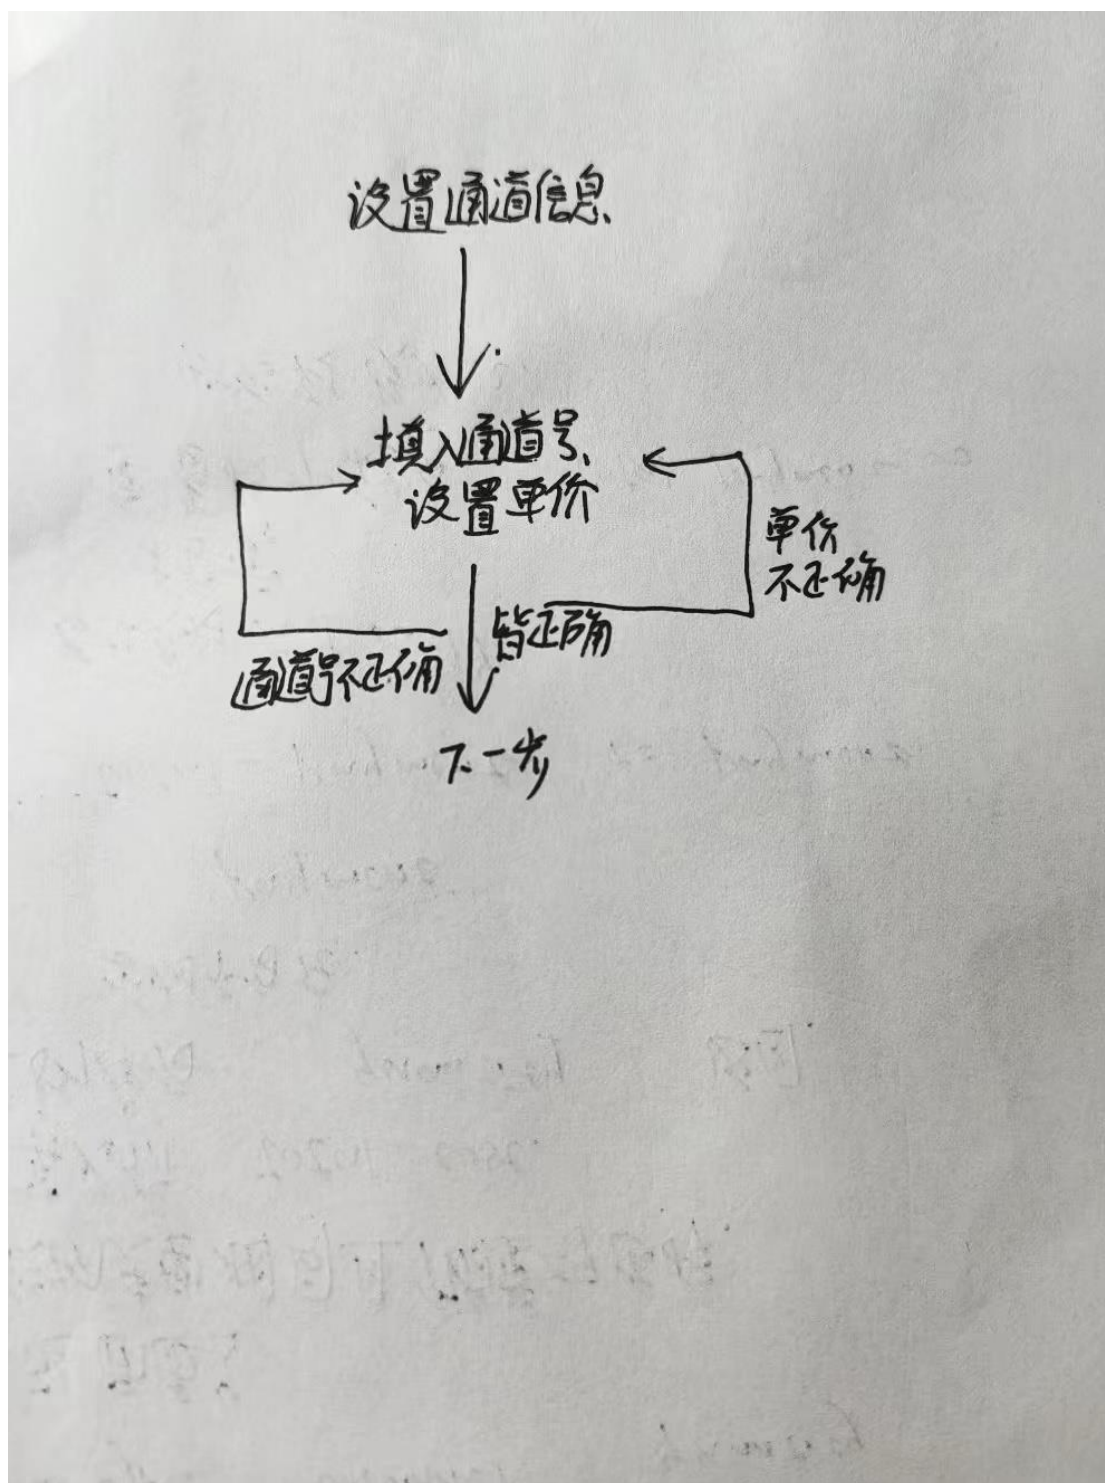 设置通道信息
填入通道号、
设置单价
单价
不正确
皆正确
通道号不正确
下一步